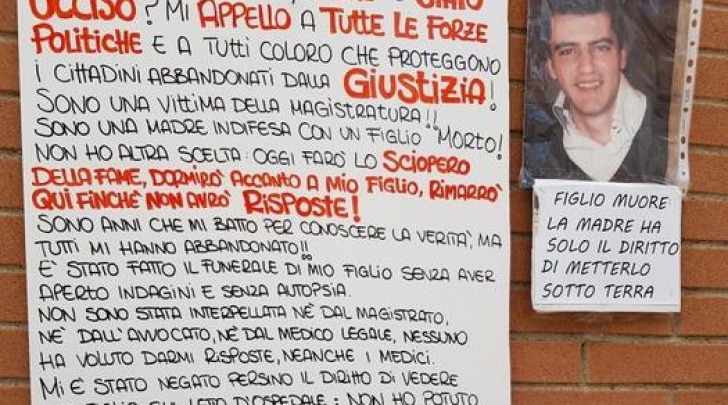 UCCISO? MI APPELLO A TUTTE LE FORZE
POLITICHE E A TUTTI COLORO CHE PROTEGGONO
I CITTADINI ABBANDONATI DALLA GIUSTIZIA!
SONO UNA VITTIMA DELLA MAGISTRATURA!!
SONO UNA MADRE INDIFESA CON UN FIGLIO "MORTO!
NON HO ALTRA SCELTA: OGGI FARÒ LO SCIOPERO
DELLA FAME, DORMIRÒ ACCANTO A MIO FIGLIO, RIMARRÒ
QUI FINCHÈ NON AVRÒ RISPOSTE!
SONO ANNI CHE MI BATTO PER CONOSCERE LA VERITÀ, MA
TUTTI MI HANNO ABBANDONATO!!
E' STATO FATTO IL FUNERALE DI MIO FIGLIO SENZA AVER
APERTO INDAGINI E SENZA AUTOPSIA.
NON SONO STATA INTERPELLATA NÈ DAL MAGISTRATO,
NÈ DALL'AVVOCATO, NÈ DAL MEDICO LEGALE, NESSUNO
HA VOLUTO DARMI RISPOSTE, NEANCHE I MEDICI.
MI È STATO NEGATO PERSINO IL DIRITTO DI VEDERE
LETTO D'OSPEDALE: NON HO POTUTO
FIGLIO MUORE
LA MADRE HA
SOLO IL DIRITTO
DI METTERLO
SOTTO TERRA